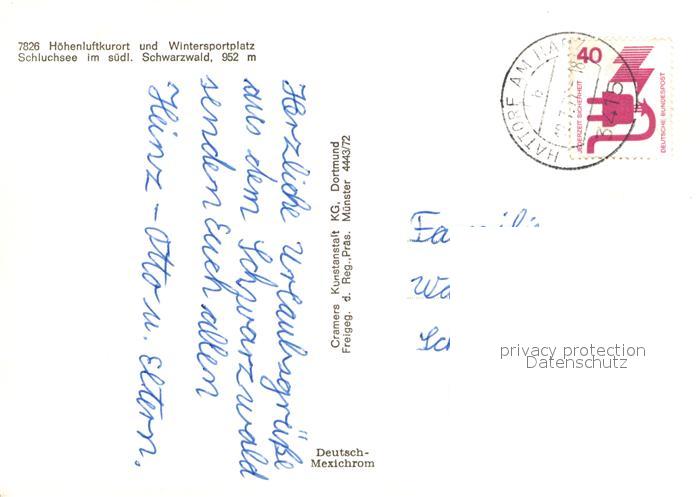 7826 Höhenluftkurort und Wintersportplatz
Schluchsee im südl. Schwarzwald, 952 m
Herzliche Urlaubsgrüße
aus dem Schwarzwald
senden Euch allen
Heinz - Otto u. Eltern.
Cramers Kunstanstalt KG, Dortmund
Freigeg. d. Reg.,Präs. Münster 4443/72
Deutsch-
Mexichrom
HATTORF AM HARZ
3415
40
JEDERZEIT SICHERHEIT
DEUTSCHE BUNDESPOST
privacy protection
Datenschutz